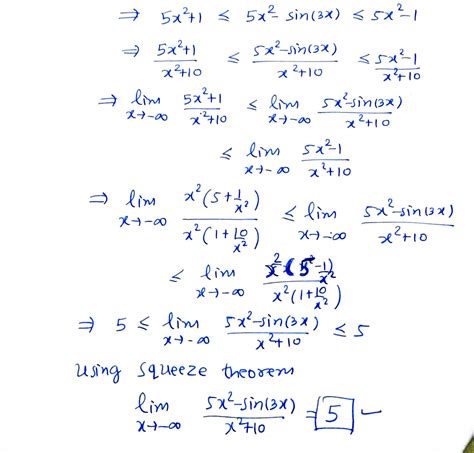 ⇒ 5x²+1 ≤ 5x²- sin(3x) ≤ 5x²-1
⇒ 5x²+1/x²+10 ≤ 5x²-sin(3x)/x²+10 ≤ 5x²-1/x²+10
⇒ lim x→-∞ 5x²+1/x²+10 ≤ lim x→-∞ 5x²-sin(3x)/x²+10
≤ lim x→-∞ 5x²-1/x²+10
⇒ lim x→-∞ x²(5+1/x²)/x²(1+10/x²) ≤ lim x→-∞ 5x²-sin(3x)/x²+10
≤ lim x→-∞ x²(5-1/x²)/x²(1+10/x²)
⇒ 5 ≤ lim x→-∞ 5x²-sin(3x)/x²+10 ≤ 5
Using squeeze theorem
lim x→-∞ 5x²-sin(3x)/x²+10 = 5